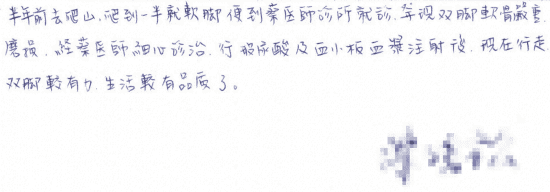 半年前去爬山,爬到一半就軟脚 便到葉医師診所就診,發現双脚軟骨嚴重
磨損,経葉医師細心診治,行 玻尿酸及血小板血漿注射後,現在行走
双脚較有力,生活較有品质了。